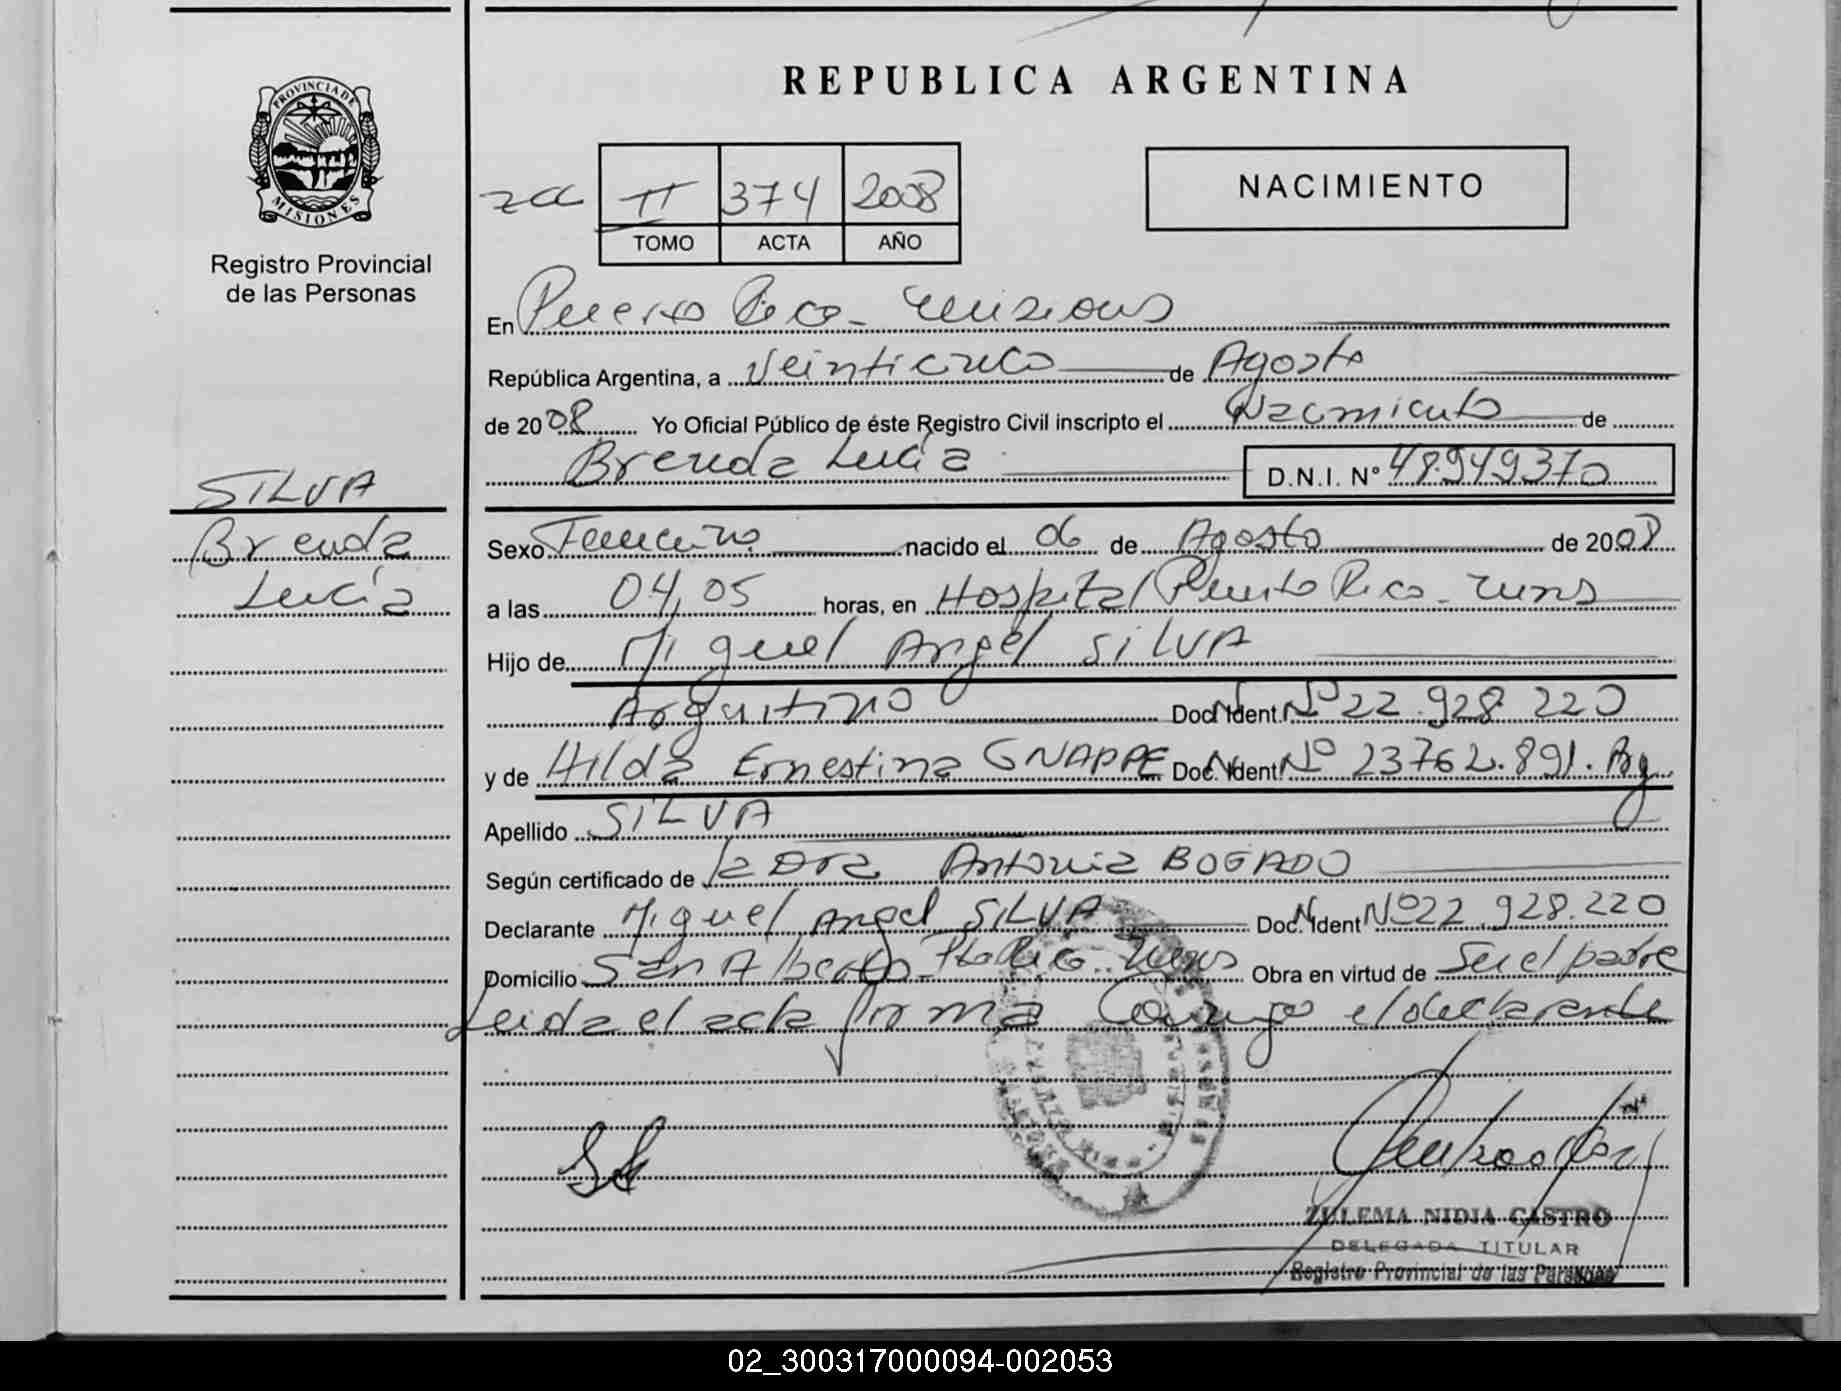 REPUBLICA ARGENTINA
PROVINCIA DE
MISIONES
Registro Provincial
de las Personas
II 374 2008
TOMO ACTA AÑO
NACIMIENTO
En Puerto Rico - Misiones
República Argentina, a Veinticinco de Agosto
de 2008 Yo Oficial Público de éste Registro Civil inscripto el Nacimiento de
Brenda Lucía D.N.I. Nº 48.949370
SILVA
Brenda
Lucía
Sexo Femenino nacido el 06 de Agosto de 2008
a las 04,05 horas, en Hospital Puerto Rico - Mnes
Hijo de Miguel Angel SILVA
Argentino Doc. Ident. Nº 22.928.220
y de Hilda Ernestina GNAPPE Doc. Ident. Nº 23762.891. Arg
Apellido SILVA
Según certificado de la Dra Antonia BOGADO
Declarante Miguel Angel SILVA Doc. Ident Nº 22.928.220
Domicilio San Alberto - Pto Rico - Mnes Obra en virtud de Ser el padre
Leida el acta firma Conmigo el declarante
ZULEMA NIDIA CASTRO
DELEGADA TITULAR
Registro Provincial de las Personas
02_300317000094-002053